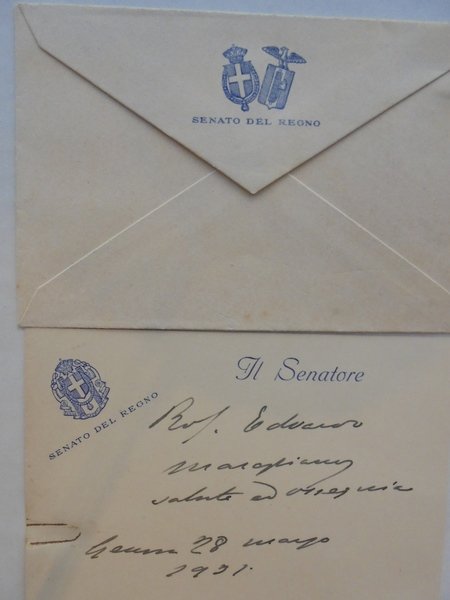 SENATO DEL REGNO
Il Senatore
SENATO DEL REGNO
Prof. Edoardo
Maragliano
saluta ed ossequia
Genova 28 marzo
1931.